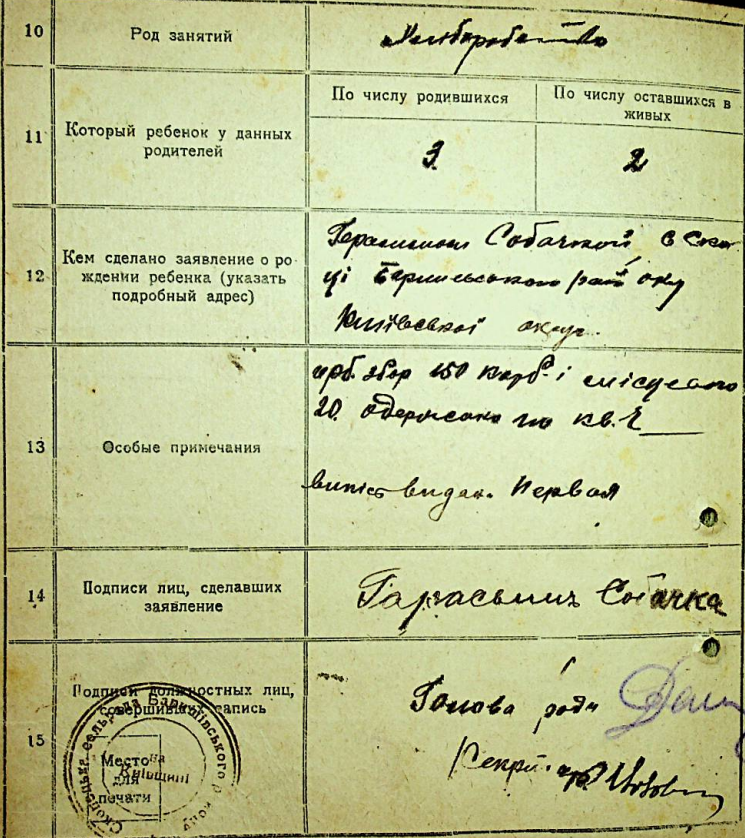 10
Род занятий
Хлібороб
11
Который ребенок у данных
родителей
По числу родившихся
По числу оставшихся в
живых
3
2
12
Кем сделано заявление о ро-
ждении ребенка (указать
подробный адрес)
Герасимом Собачкой в Ско
ці Баришського району
Київської округ.
13
Особые примечания
збор 150 карб. і місцевого
20. одержано по кв. №
випис видан. Первая
14
Подписи лиц, сделавших
заявление
Гарасьим Собачка
15
Подписи должностных лиц,
совершивших запись
Место
для
печати
Скопецька сельрада Баришівського району на Київщині
Голова ради
Секрт.